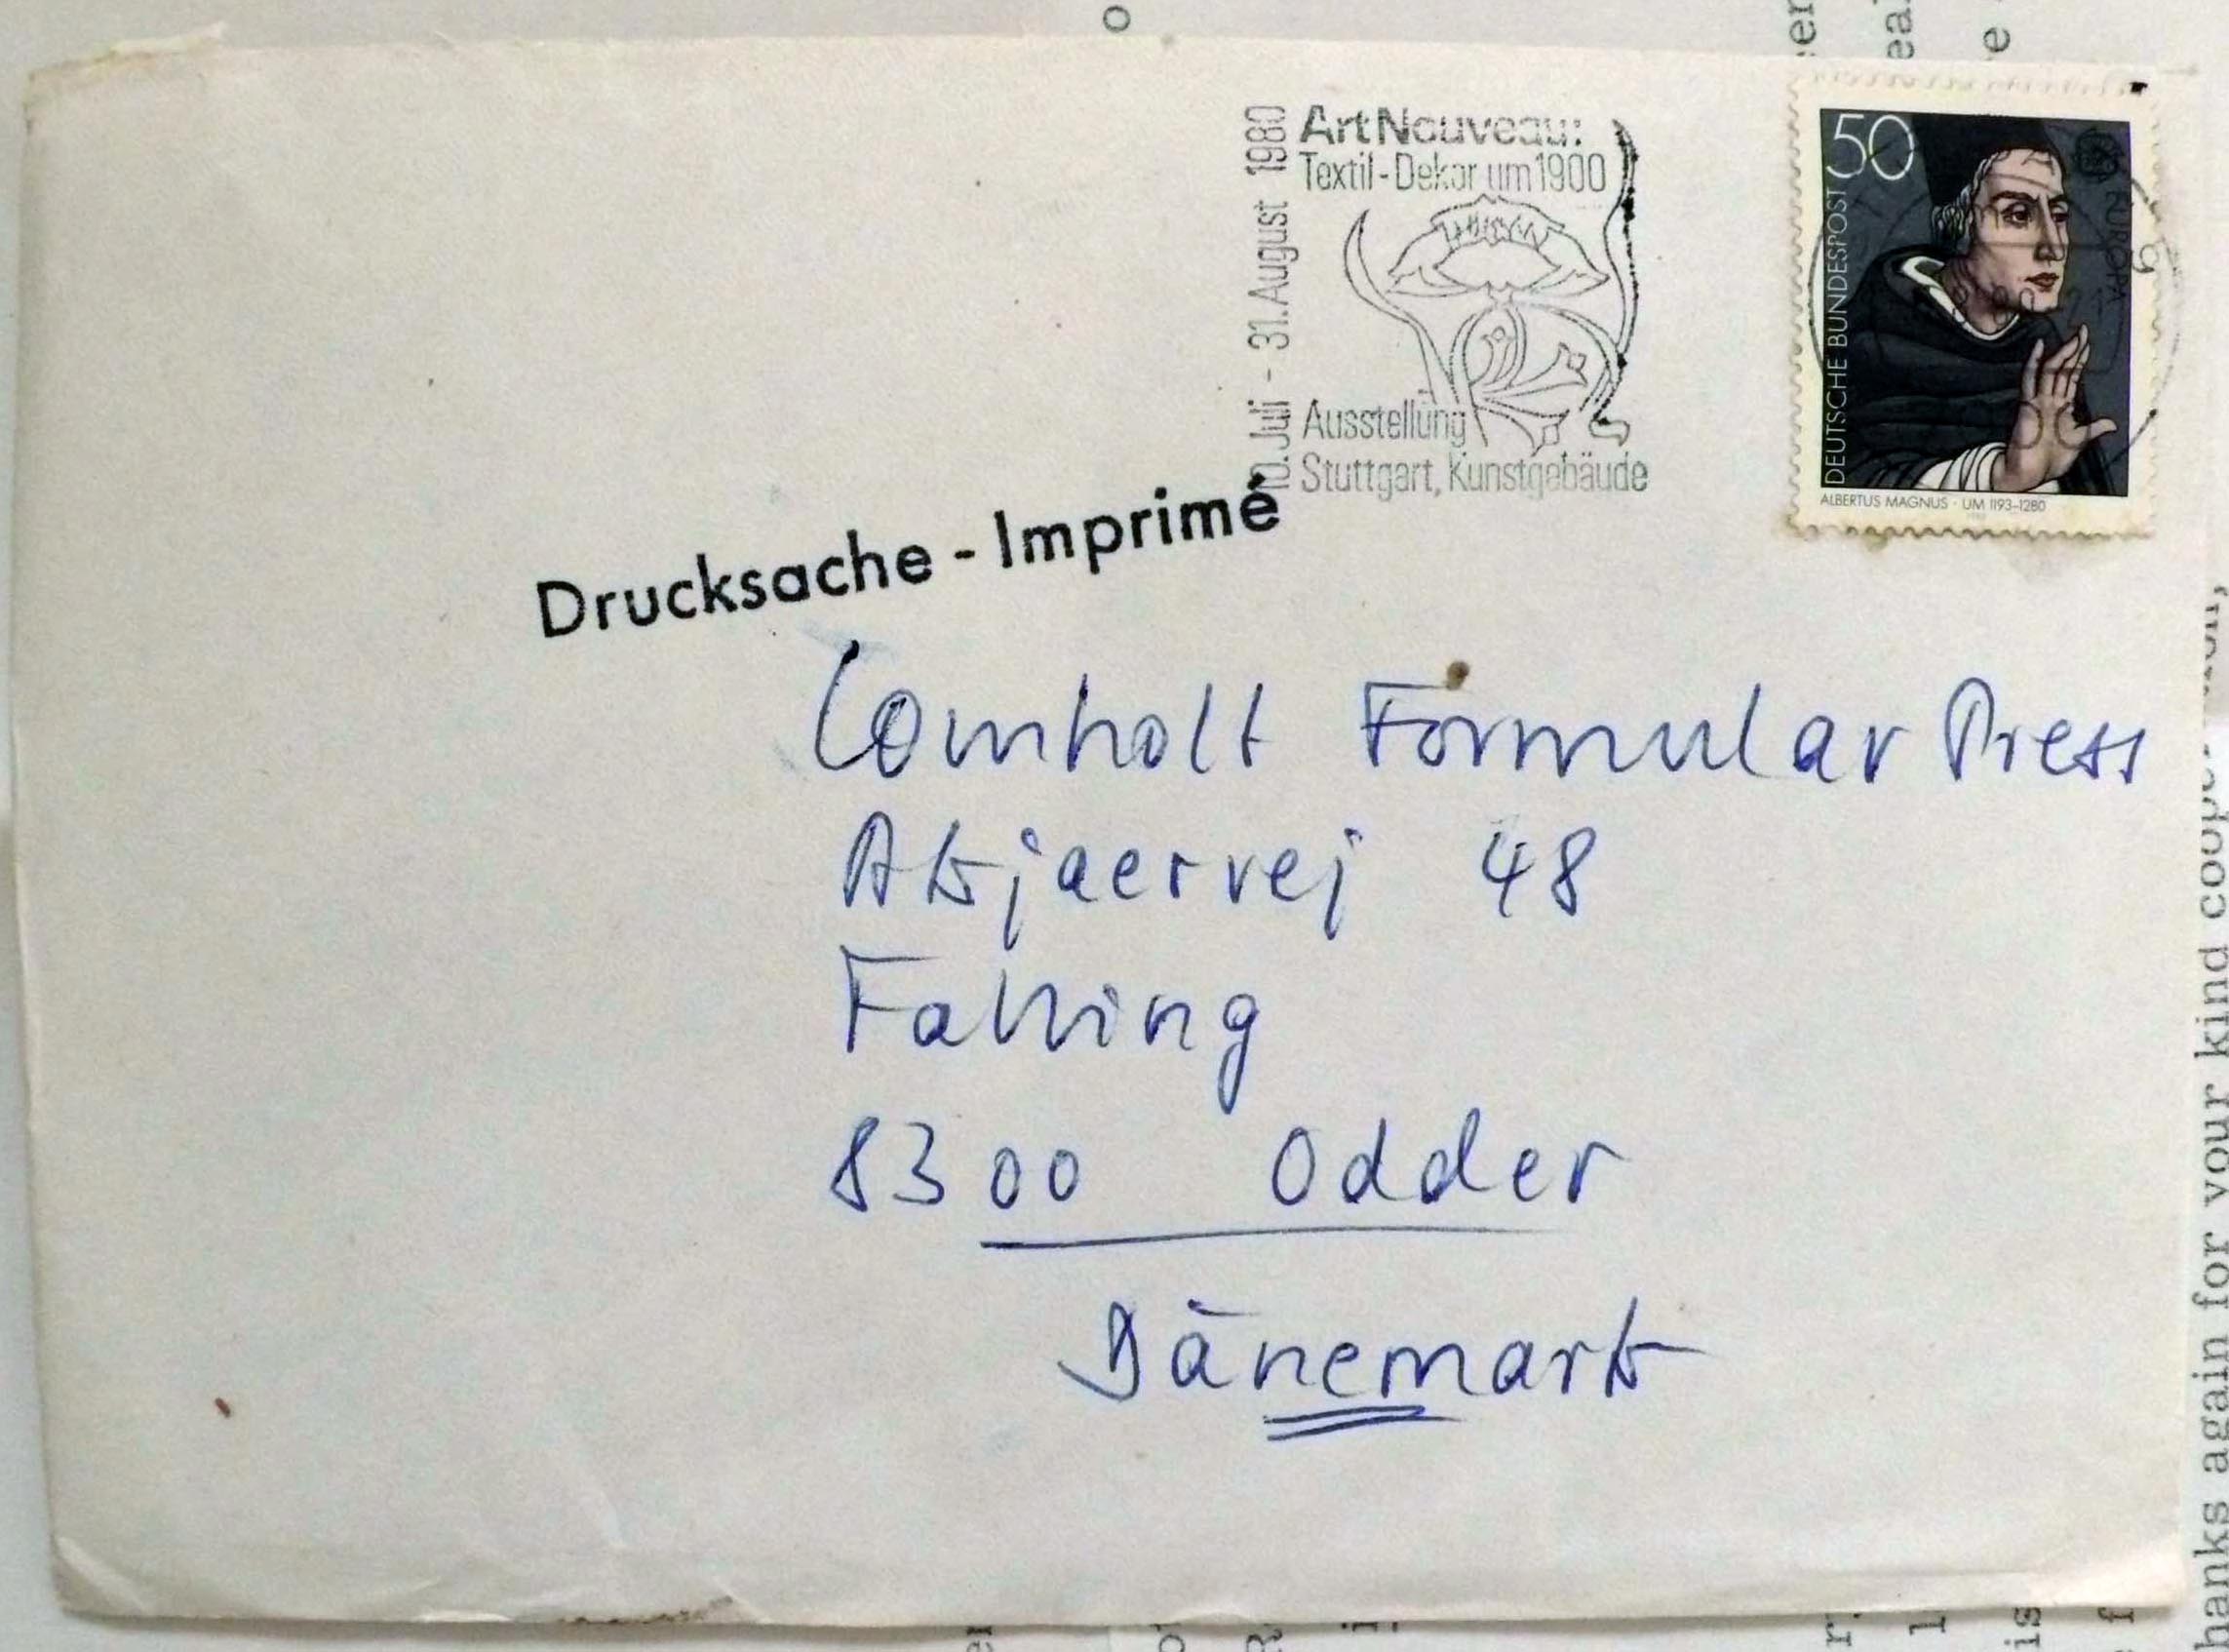 10. Juli - 31. August 1980
Art Nouveau:
Textil-Dekor um 1900
Ausstellung
Stuttgart, Kunstgebäude
50
DEUTSCHE BUNDESPOST
EUROPA
ALBERTUS MAGNUS · UM 1193–1280
Drucksache - Imprimé
Lomholt Formular Press
Akjaervej 48
Falling
8300 Odder
Dänemark
hanks again for your kind